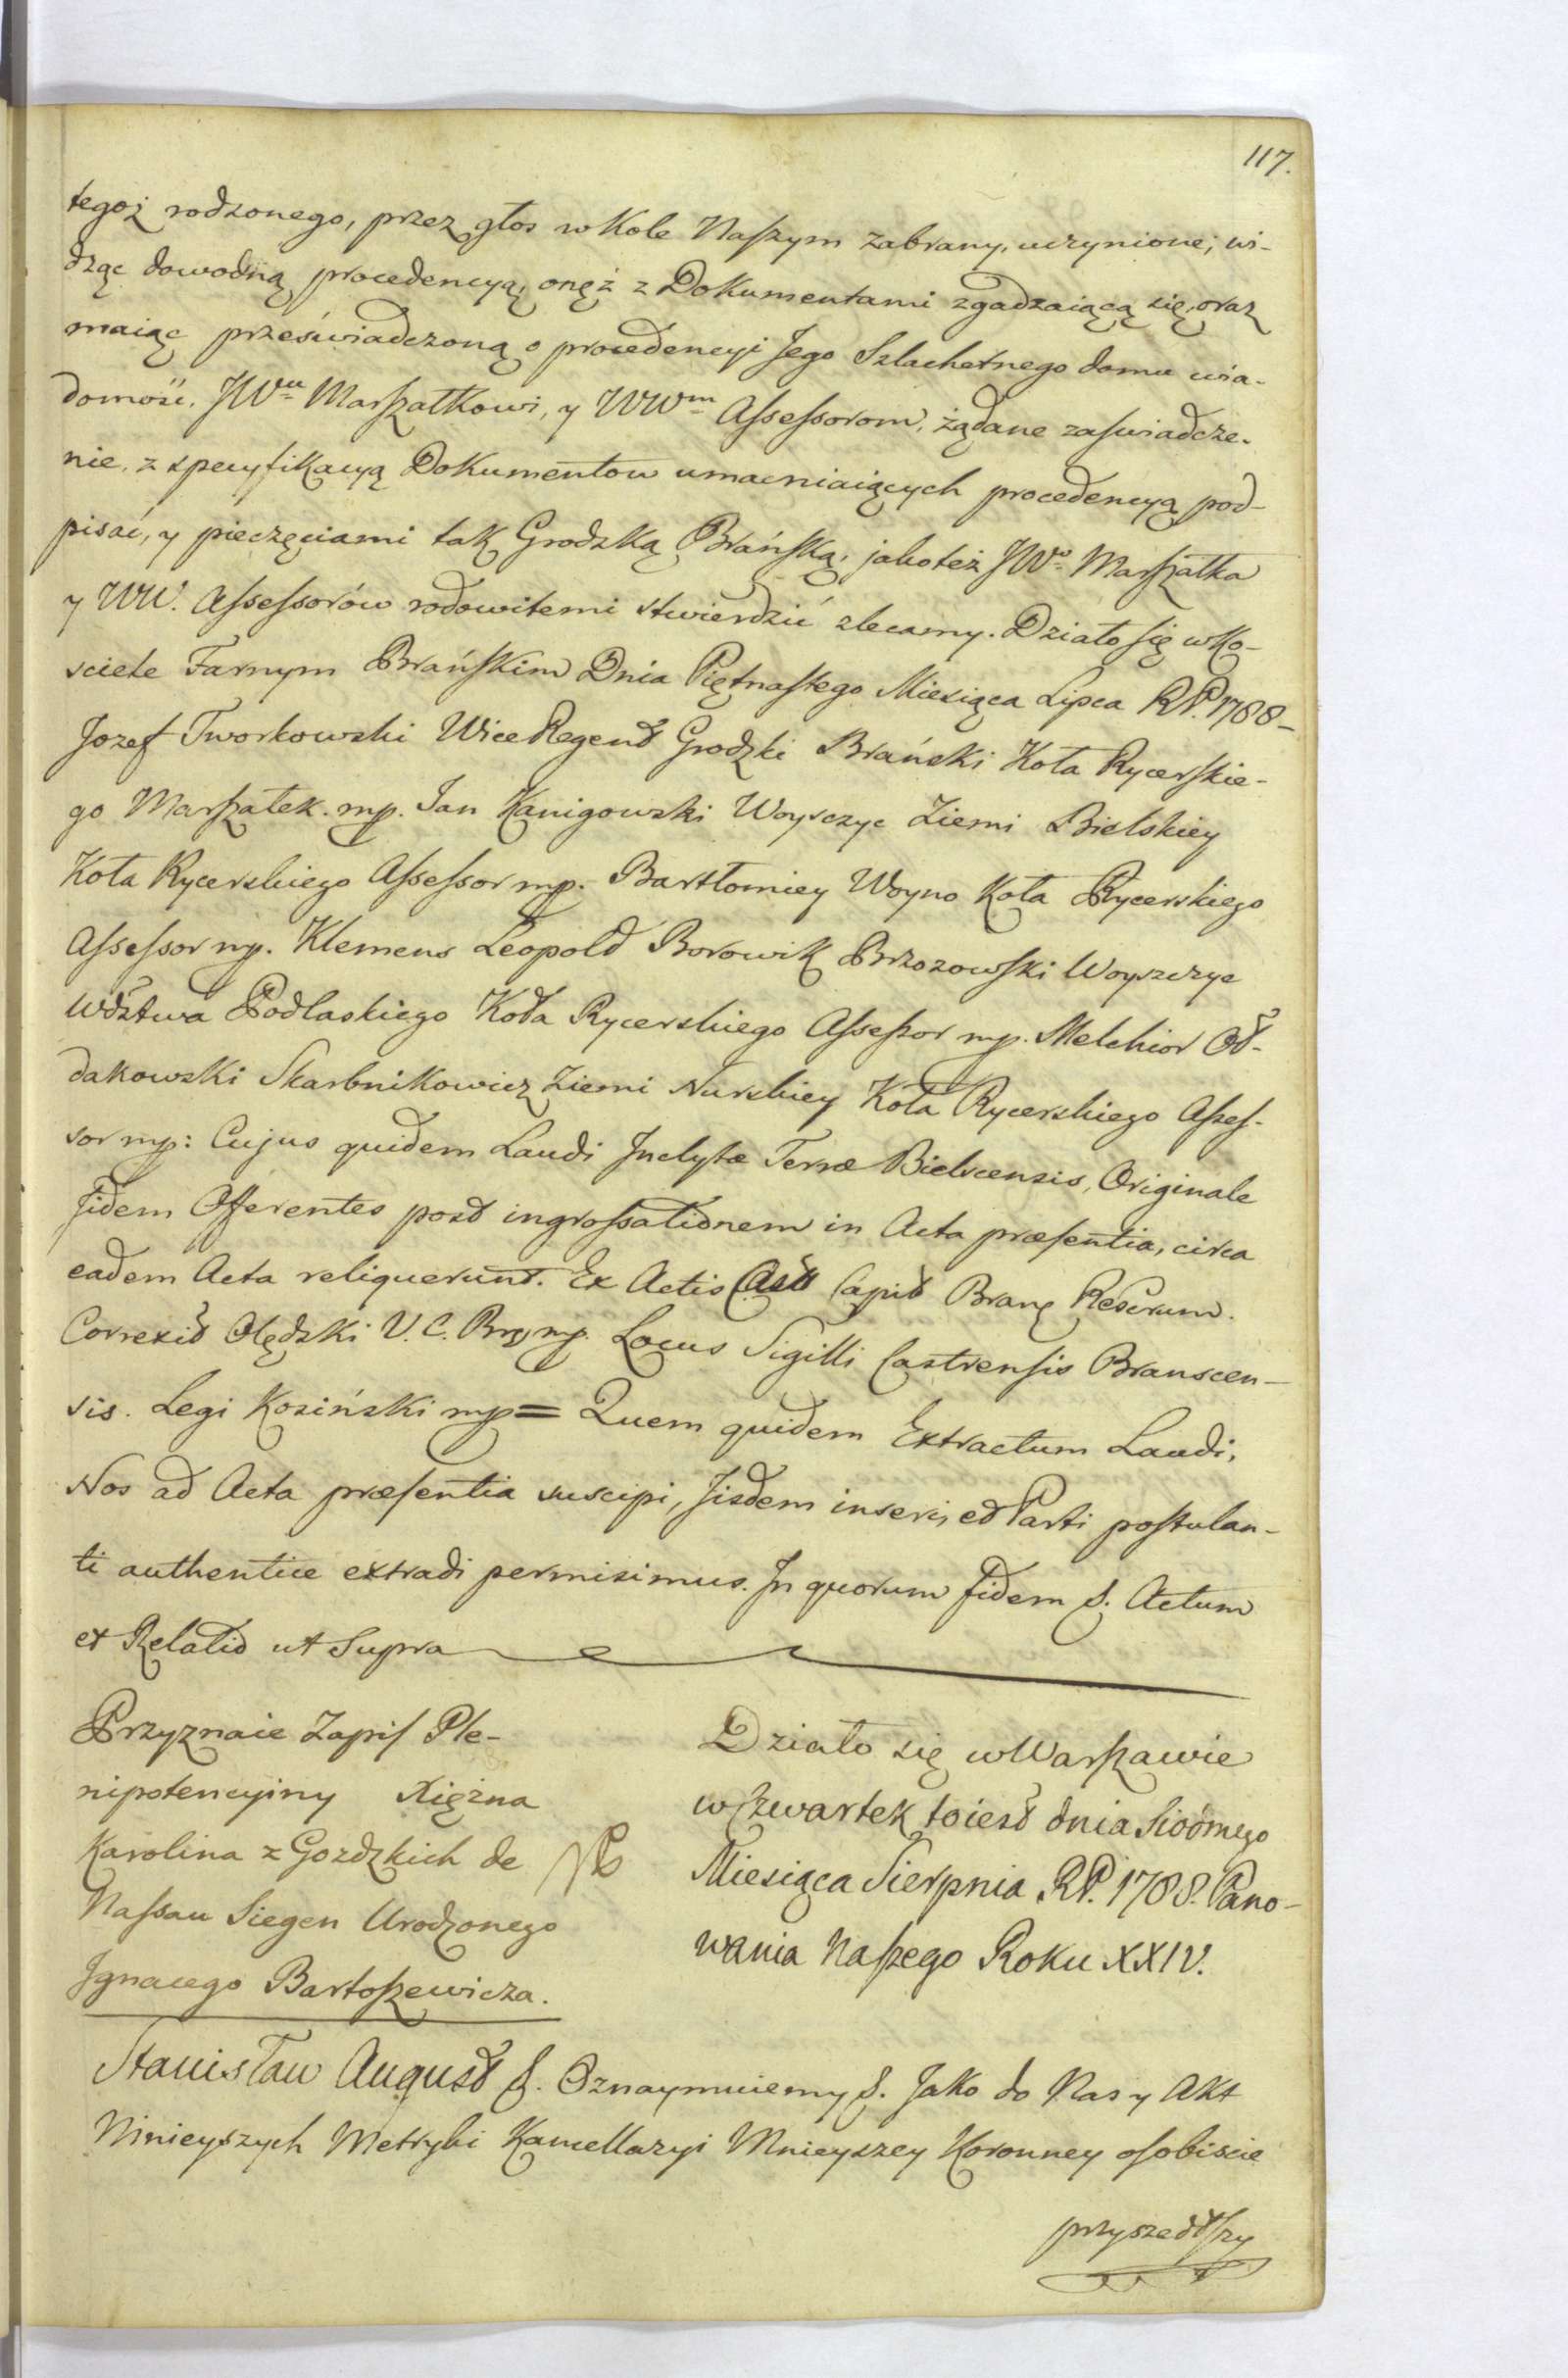 117.
tegoż rodzonego, przez głos w Kole Naszym zabrany, uczynione; wi-
dząc dowodną procedencyą, onęż z Dokumentami zgadzaiącą się, oraz
maiąc przeświadczoną o procedencyi Jego Szlachetnego domu wia-
domość. JWu Marszałkowi, y WWm Assessorom, żądane zaswiadcze-
nie, z specyfikacyą Dokumentow umacniaiących procedencyą pod-
pisać, y pieczęciami tak Grodzką Brańską, jakoteż JWo Marszałka
y WW. Assessorów rodowitemi stwierdzić zlecamy. Działo się w Ko-
sciele Farnym Brańskim Dnia Piętnastego Miesiąca Lipca RP. 1788-
Jozef Tworkowski Wice Regent Grodzki Brański Koła Rycerskie-
go Marszałek. mp. Jan Kanigowski Woyszczyc Ziemi Bielskiey
Koła Rycerskiego Assessor mp. Bartłomiey Woyno Koła Rycerskiego
Assessor mp. Klemens Leopold Borowik Brzozowski Woyszczyc
Wdztwa Podlaskiego Koła Rycerskiego Assessor mp. Melchior Oł-
dakowski Skarbnikowicz Ziemi Nurskiey Koła Rycerskiego Asses-
sor mp: Cujus quidem Laudi Inclytæ Terræ Bielscensis, Originale
Iidem Offerentes post ingrossationem in Acta præsentia, circa
eadem Acta reliquerunt. Ex Actis Castr Capit Branę Rescrum.
Correxit Olędzki V. C. Brę mp. Locus Sigilli Castrensis Branscen-
sis. Legi Kosiński mp = Quem quidem Extractum Laudi,
Nos ad Acta præsentia suscipi, Iisdem inseri, et Parti postulan-
ti authentice extradi permisimus. In quorum fidem &. Actum
et Relatio ut Supra
Przyznaie Zapis Ple-
nipotencyiny Xiężna
Karolina z Gozdzkich de
Nassau Siegen Urodzonego
Ignacego Bartoszewicza.
Działo się w Warszawie
w Czwartek to iest dnia Siodmego
Miesiąca Sierpnia RP. 1788. Pano-
wania Naszego Roku XXIV.
Stanisław August &. Oznaymuiemy &. Jako do Nas y Akt
Ninieyszych Metryki Kancellaryi Mnieyszey Koronney osobiscie
przyszedłszy